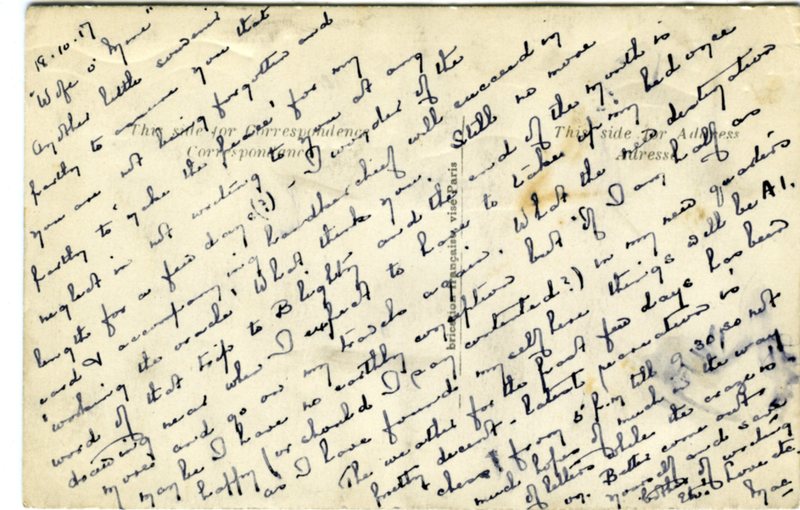 18.10.17
"Wife o' Mine"
Another little souvenir
partly to assure you that
you are not being forgotten and
partly to 'make the peace' for my
neglect in not writing to you at any
length for a few days (?) - I wonder if the
card & accompanying handkerchief will succeed in
'working the oracle'. What think you. Still no more
word of that trip to Blighty and the end of the month is
drawing near when I expect to have to take up my bed once
more and go on my travels again. What the new destination
maybe I have no earthly conception but if I am half as
happy (or should I say contented?) in my new quarters
as I have found myself here things will be A1.
The weather for the past few days has been
pretty decent. Latest is
chess! from 5 p.m till 9.30 so not
much hopes of much in the way
of letters while the craze is
on. Better come out
yourself and save
bother of writing
love etc.
Mac
This side for Correspondence
Correspondance
This side for Address
Adresse
brication française, visé Paris